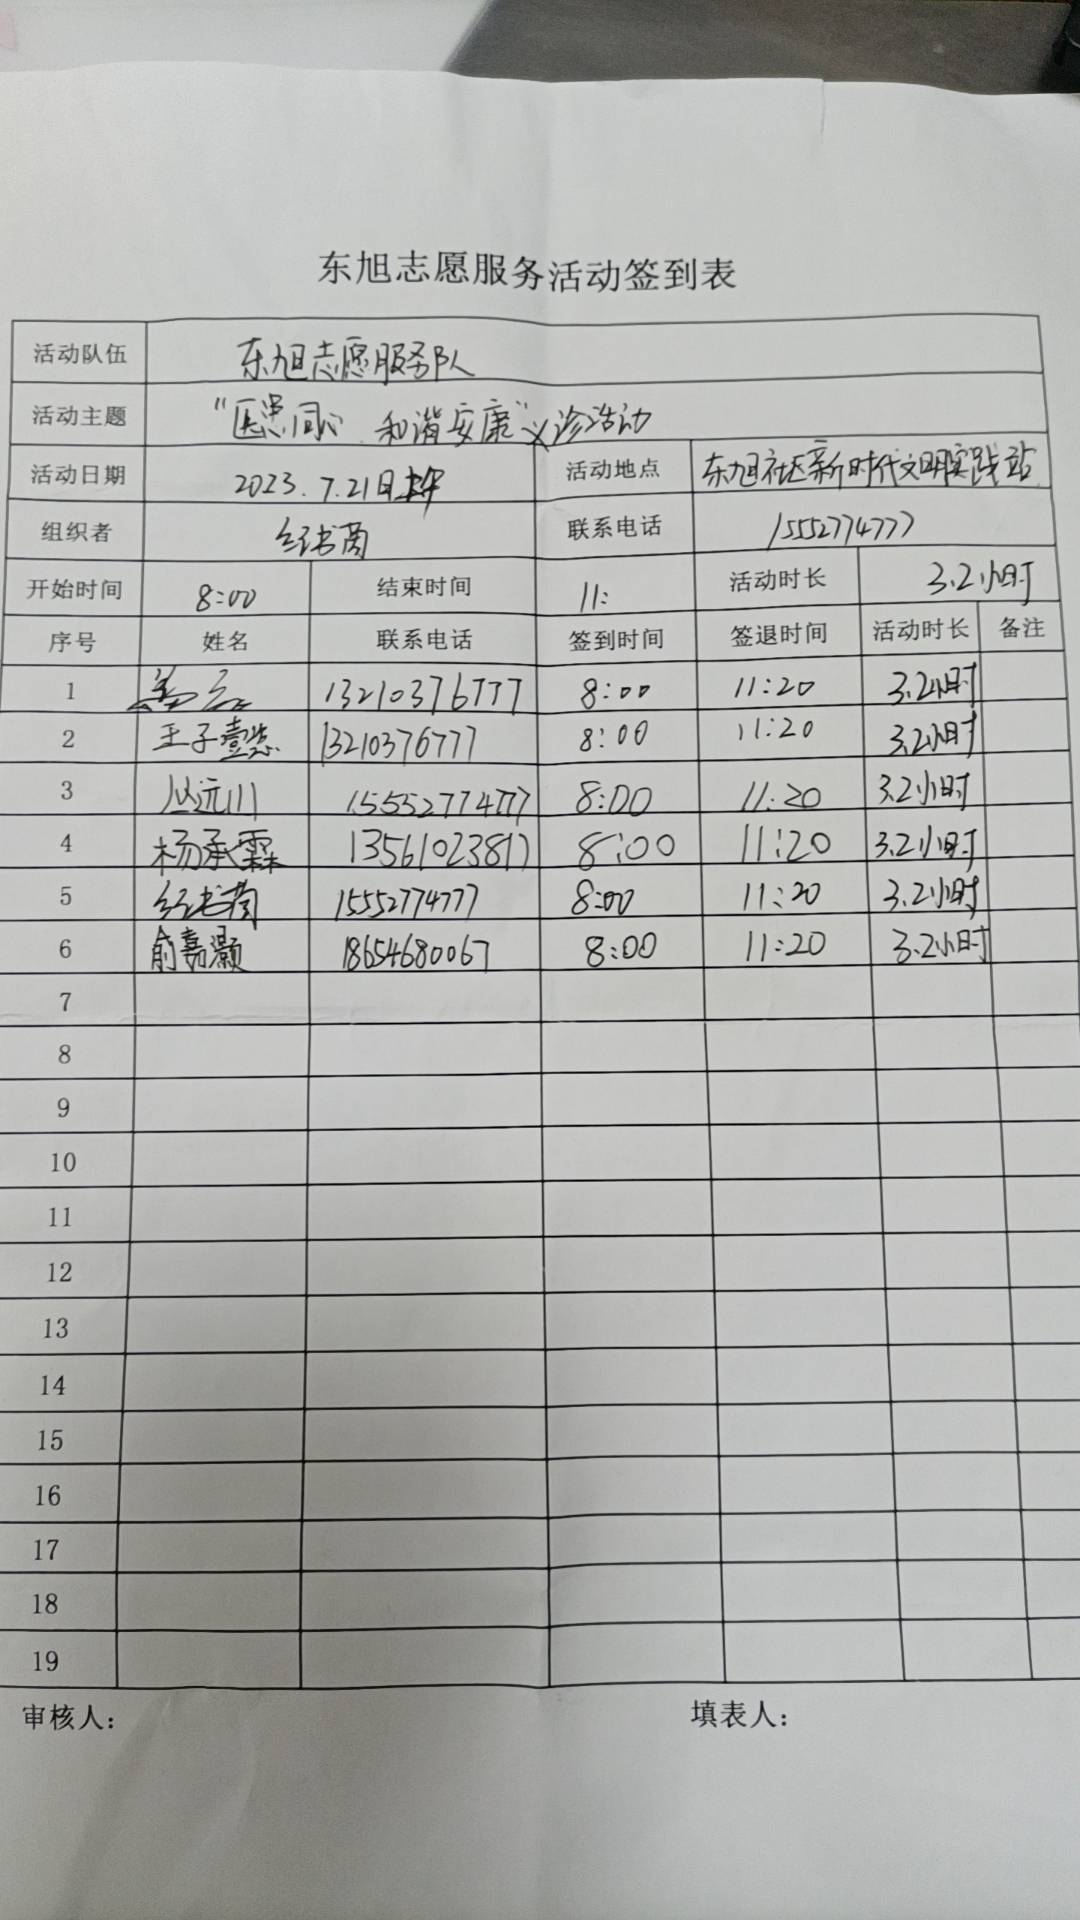 东旭志愿服务活动签到表
活动队伍 东旭志愿服务队
活动主题 "医患同心 和谐安康"义诊活动
活动日期 2023.7.21日上午 活动地点 东旭社区新时代文明实践站
组织者 联系电话 15552774777
开始时间 8:00 结束时间 11: 活动时长 3.2小时
序号 姓名 联系电话 签到时间 签退时间 活动时长 备注
1 13210376777 8:00 11:20 3.2小时
2 王子懿 13210376777 8:00 11:20 3.2小时
3 丛远川 15552774777 8:00 11:20 3.2小时
4 杨承霖 13561023817 8:00 11:20 3.2小时
5 15552774777 8:00 11:20 3.2小时
6 俞嘉灏 18654680067 8:00 11:20 3.2小时
7
8
9
10
11
12
13
14
15
16
17
18
19
审核人： 填表人：